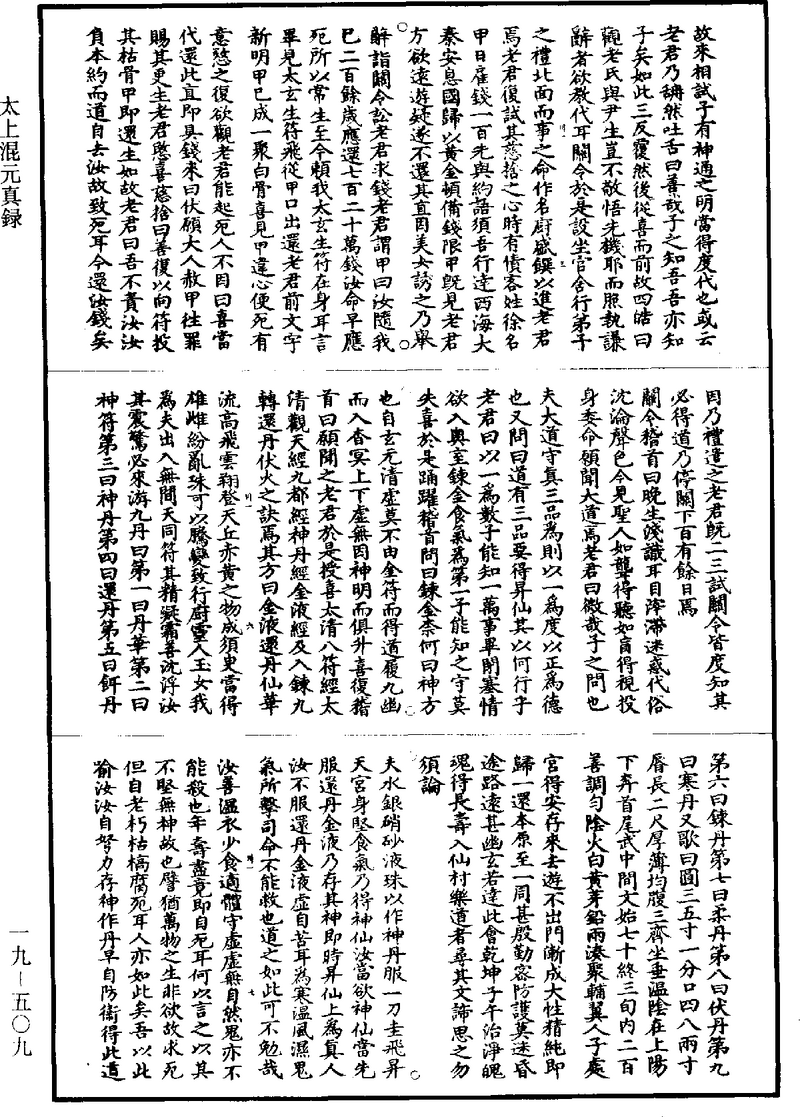 太上混元真録
一九—五〇九
故來相試子有神通之明當得度代也或云
老君乃聃然吐舌曰善哉子之知吾吾亦知
子矣如此三反覆然後從喜而前故四皓曰
觀老氏與尹生豈不敢悟先機耶而照執謙
辭者欲教代耳關令於是設坐官舍行弟子
之禮北面而事之命作名廚盛饌以進老君
焉老君復試其慈捨之心時有債客姓徐名
甲日雇錢一百先與約語須吾行達西海大
秦安息國歸以黄金頓備錢限甲旣見老君
方欲遠遊疑遂不還其直因美女誘之乃舉
辭詣關令訟老君求錢老君謂甲曰汝隨我
已二百餘歲應還七百二十萬錢汝命早應
死所以常生至今賴我太玄生符在身耳言
畢見太玄生符飛從甲口出還老君前文字
新明甲已成一聚白骨喜見甲違心便死有
意愍之復欲觀老君能起死人不因曰喜當
代還此直即具錢來曰伏願大人赦甲往罪
賜其更生老君愍喜慈捨曰善復以向符投
其枯骨甲即還生如故老君曰吾不責汝汝
負本約而道自去汝故致死耳今還汝錢矣
因乃禮遣之老君旣二三試關令皆度知其
必得道乃停關下百有餘日焉
關令稽首曰晚生淺識耳目滓滯迷惑代俗
沈淪聲色今見聖人如聾得聽如盲得視投
身委命願聞大道焉老君曰微哉子之問也
夫大道守真三品為則以一為度以正為德
也又問曰道有三品要得昇仙其以何行乎
老君曰以一為數子能知一萬事畢閉塞情
欲入奥室鍊金食氣為第一子能知之守莫
失喜於是踊躍稽首問曰鍊金柰何曰神方
也自玄元清虚莫不由金符而得道履九幽
而入杳冥上下虚無因神明而俱升喜復稽
首曰願聞之老君於是授喜太清八符經太
清觀天經九都經神丹經金液經及入鍊九
轉還丹伏火之訣焉其方曰金液還丹仙華
流高飛雲翔登天丘赤黄之物成須臾當得
雄雌紛亂珠可以騰變致行廚靈人玉女我
為夫出入無間天同符其精凝霜善沈浮汝
其震驚必來游九丹曰第一曰丹華第二曰
神符第三曰神丹第四曰還丹第五曰餌丹
第六曰鍊丹第七曰柔丹第八曰伏丹第九
曰寒丹又歌曰圓三五寸一分口四八兩寸
脣長二尺厚薄均腹三齊坐垂温陰在上陽
下奔首尾武中間文始七十終三旬内二百
善調勻陰火白黄芽鉛兩湊聚輔翼人子處
宫得安存來去遊不出門漸成大性精純即
歸一還本原至一周甚殷勤密防護莫迷昏
途路遠甚幽玄若達此會乾坤子午治淨魄
魂得長壽入仙村樂道者尋其文諦思之勿
須論
夫水銀硝砂液珠以作神丹服一刀圭飛昇
天宫身堅食氣乃得神仙汝當欲神仙當先
服還丹金液乃存其神即時昇仙上為真人
汝不服還丹金液虚自苦耳為寒温風濕鬼
氣所擊司命不能救也道之如此可不勉哉
汝善温衣少食適體守虚虚無自然鬼亦不
能殺也年壽盡竟即自死耳何以言之以其
不堅無神故也譬猶萬物之生非欲故求死
但自老朽枯槁腐死耳人亦如此矣吾以此
喻汝汝自努力存神作丹早自防衞得此道